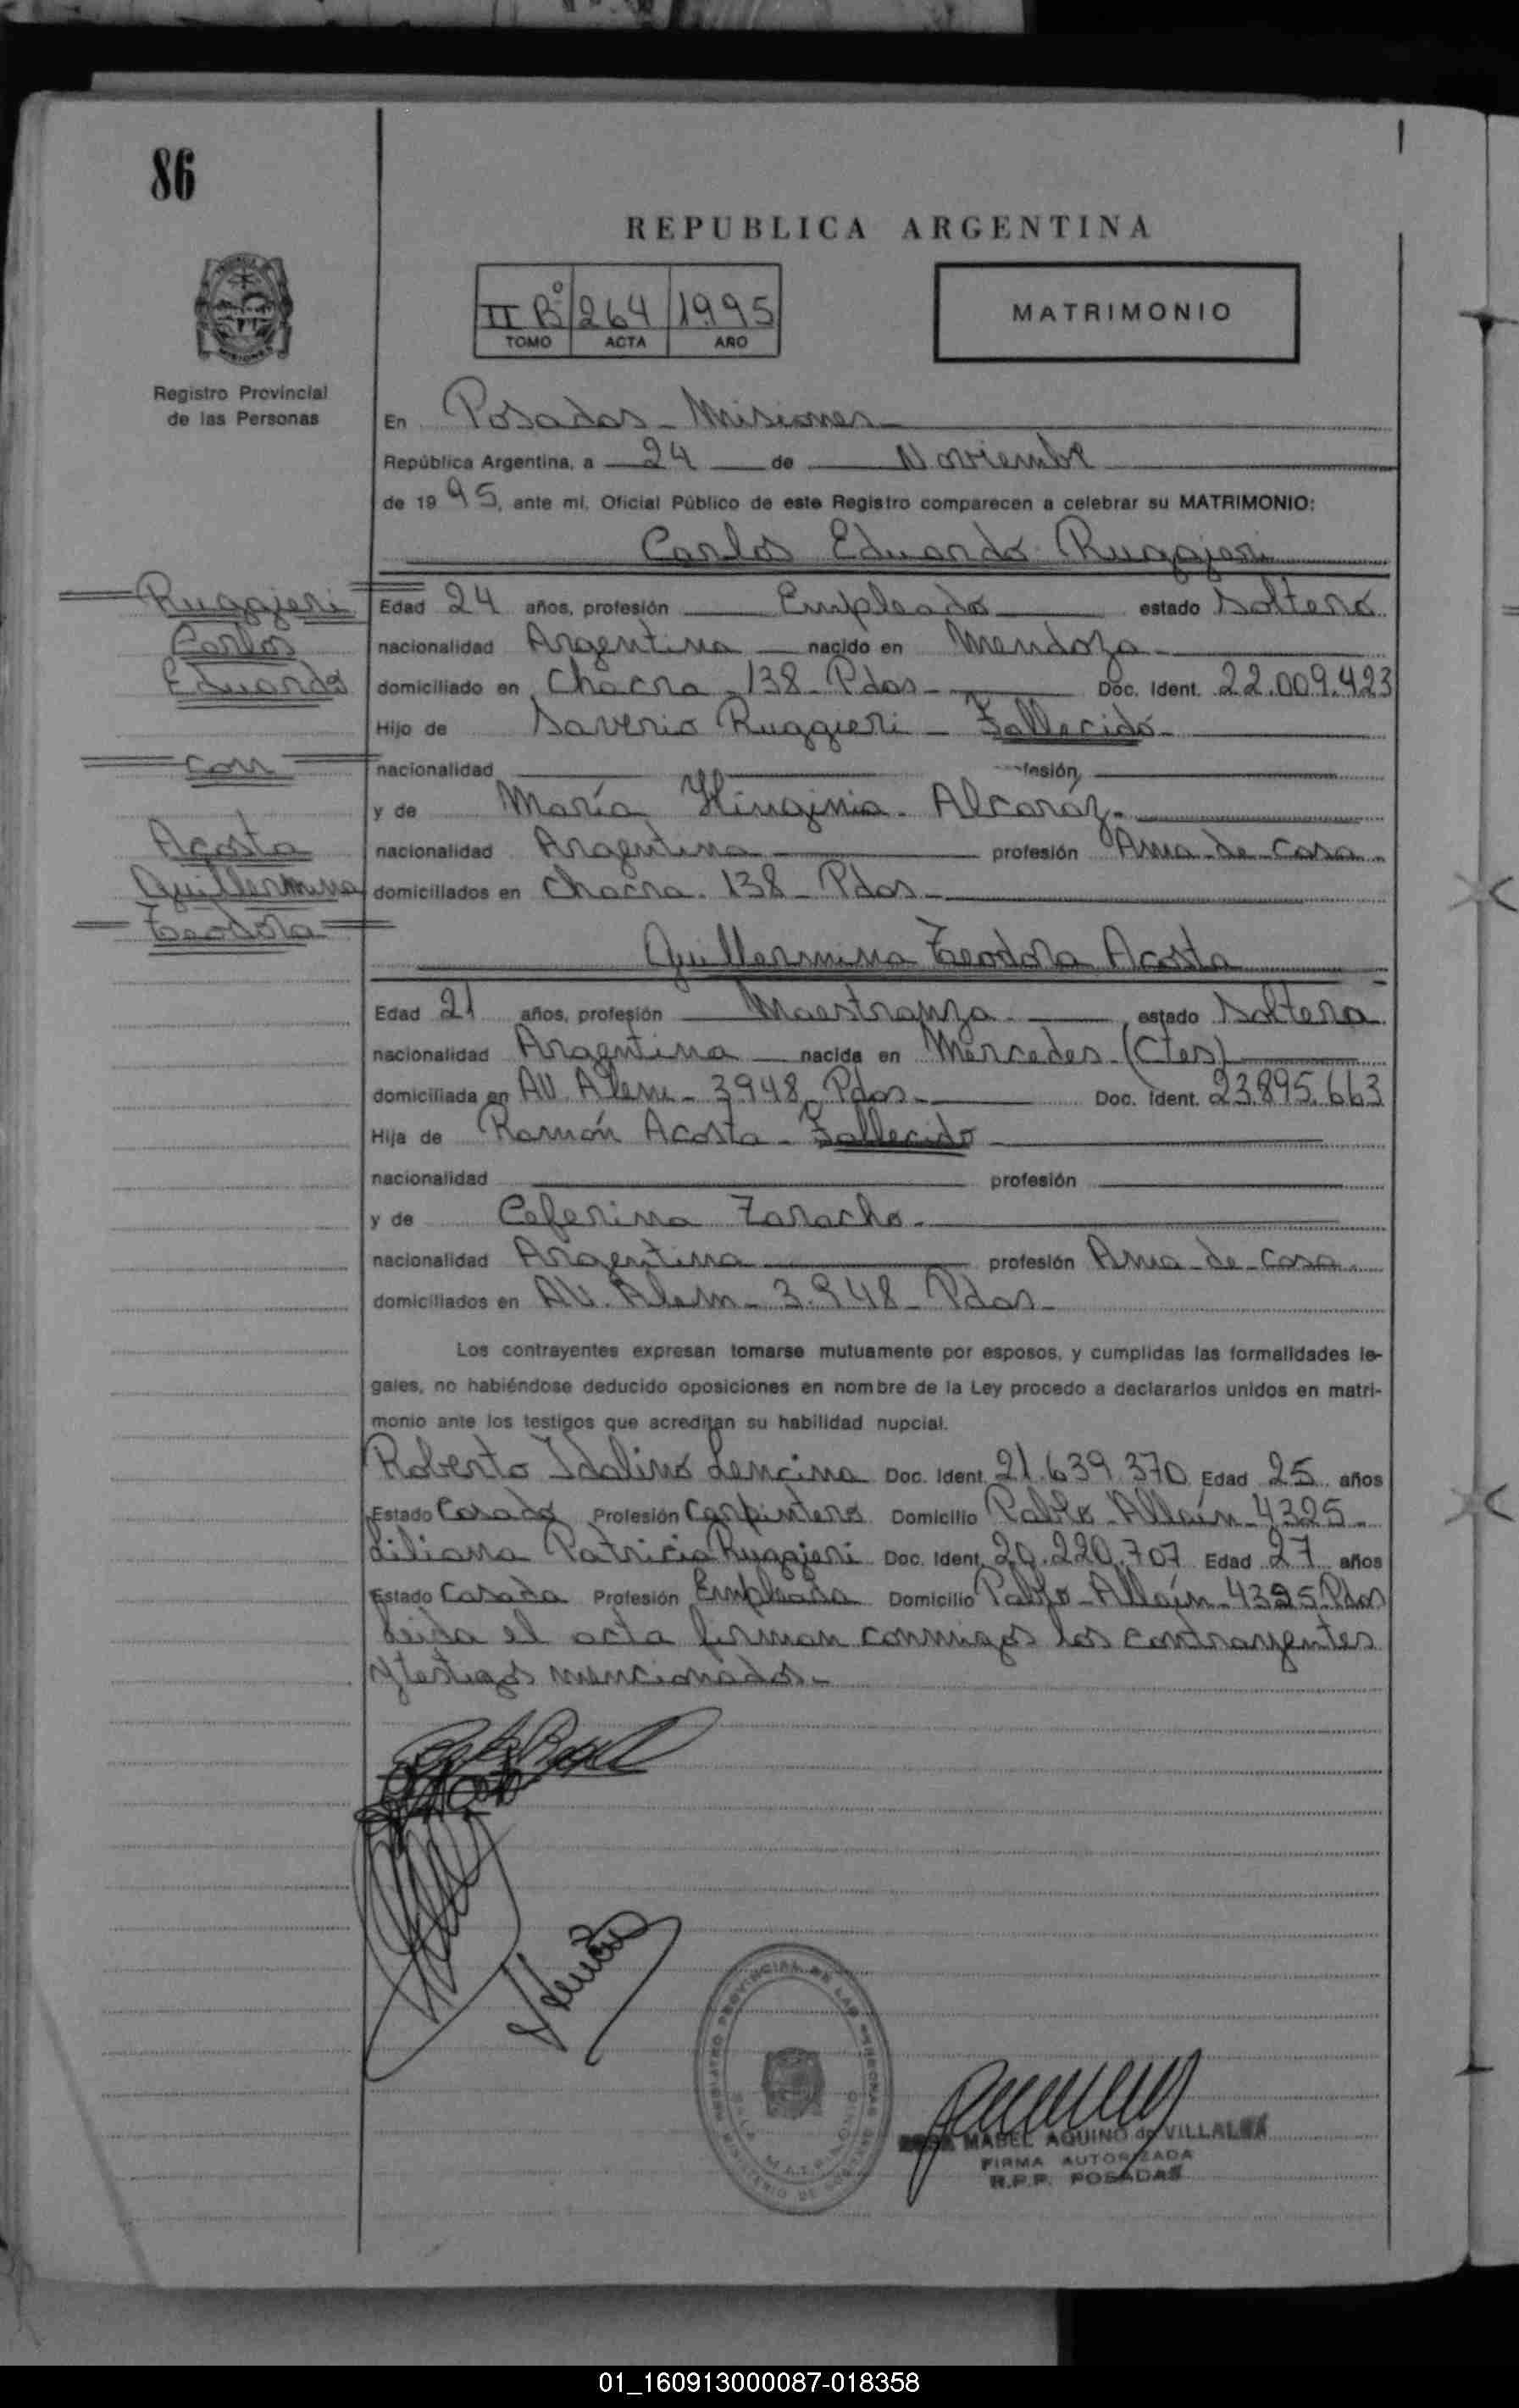 86
REPUBLICA ARGENTINA
II Bº 264 1995
TOMO ACTA AÑO
MATRIMONIO
Registro Provincial
de las Personas
En Posadas - Misiones
República Argentina, a 24 de Noviembre
de 1995, ante mí, Oficial Público de este Registro comparecen a celebrar su MATRIMONIO:
Carlos Eduardo Ruggieri
Ruggieri
Carlos
Eduardo
con
Acosta
Guillermina
Teodora
Edad 24 años, profesión Empleado estado Soltero
nacionalidad Argentina nacido en Mendoza
domiciliado en Chacra 138 - Pdas - Doc. Ident. 22.009.423
Hijo de Saverio Ruggieri - Fallecido
nacionalidad
y de María Higinia Alcaráz
nacionalidad Argentina profesión Ama de casa
domiciliados en Chacra 138 - Pdas -
Guillermina Teodora Acosta
Edad 21 años, profesión Maestranza estado Soltera
nacionalidad Argentina nacida en Mercedes (Ctes)
domiciliada en AV. Alem - 3948 - Pdas - Doc. Ident. 23.895.663
Hija de Ramón Acosta - Fallecido
nacionalidad profesión
y de Ceferina Zaracho
nacionalidad Argentina profesión Ama de casa
domiciliados en AV. Alem - 3.948 - Pdas -
Los contrayentes expresan tomarse mutuamente por esposos, y cumplidas las formalidades le-
gales, no habiéndose deducido oposiciones en nombre de la Ley procedo a declararlos unidos en matri-
monio ante los testigos que acreditan su habilidad nupcial.
Roberto Idalino Lencina Doc. Ident. 21.639.370 Edad 25 años
Estado Casado Profesión Carpintero Domicilio Pablo Allaín - 4325 -
Liliana Patricia Ruggieri Doc. Ident. 20.220.707 Edad 27 años
Estado Casada Profesión Empleada Domicilio Pablo Allaín - 4325 Pdas
Leida el acta firman conmigo los contrayentes
y testigos mencionados -
REGISTRO PROVINCIAL DE LAS PERSONAS
MABEL AQUINO de VILLALBA
FIRMA AUTORIZADA
R.P.P. POSADAS
01_160913000087-018358